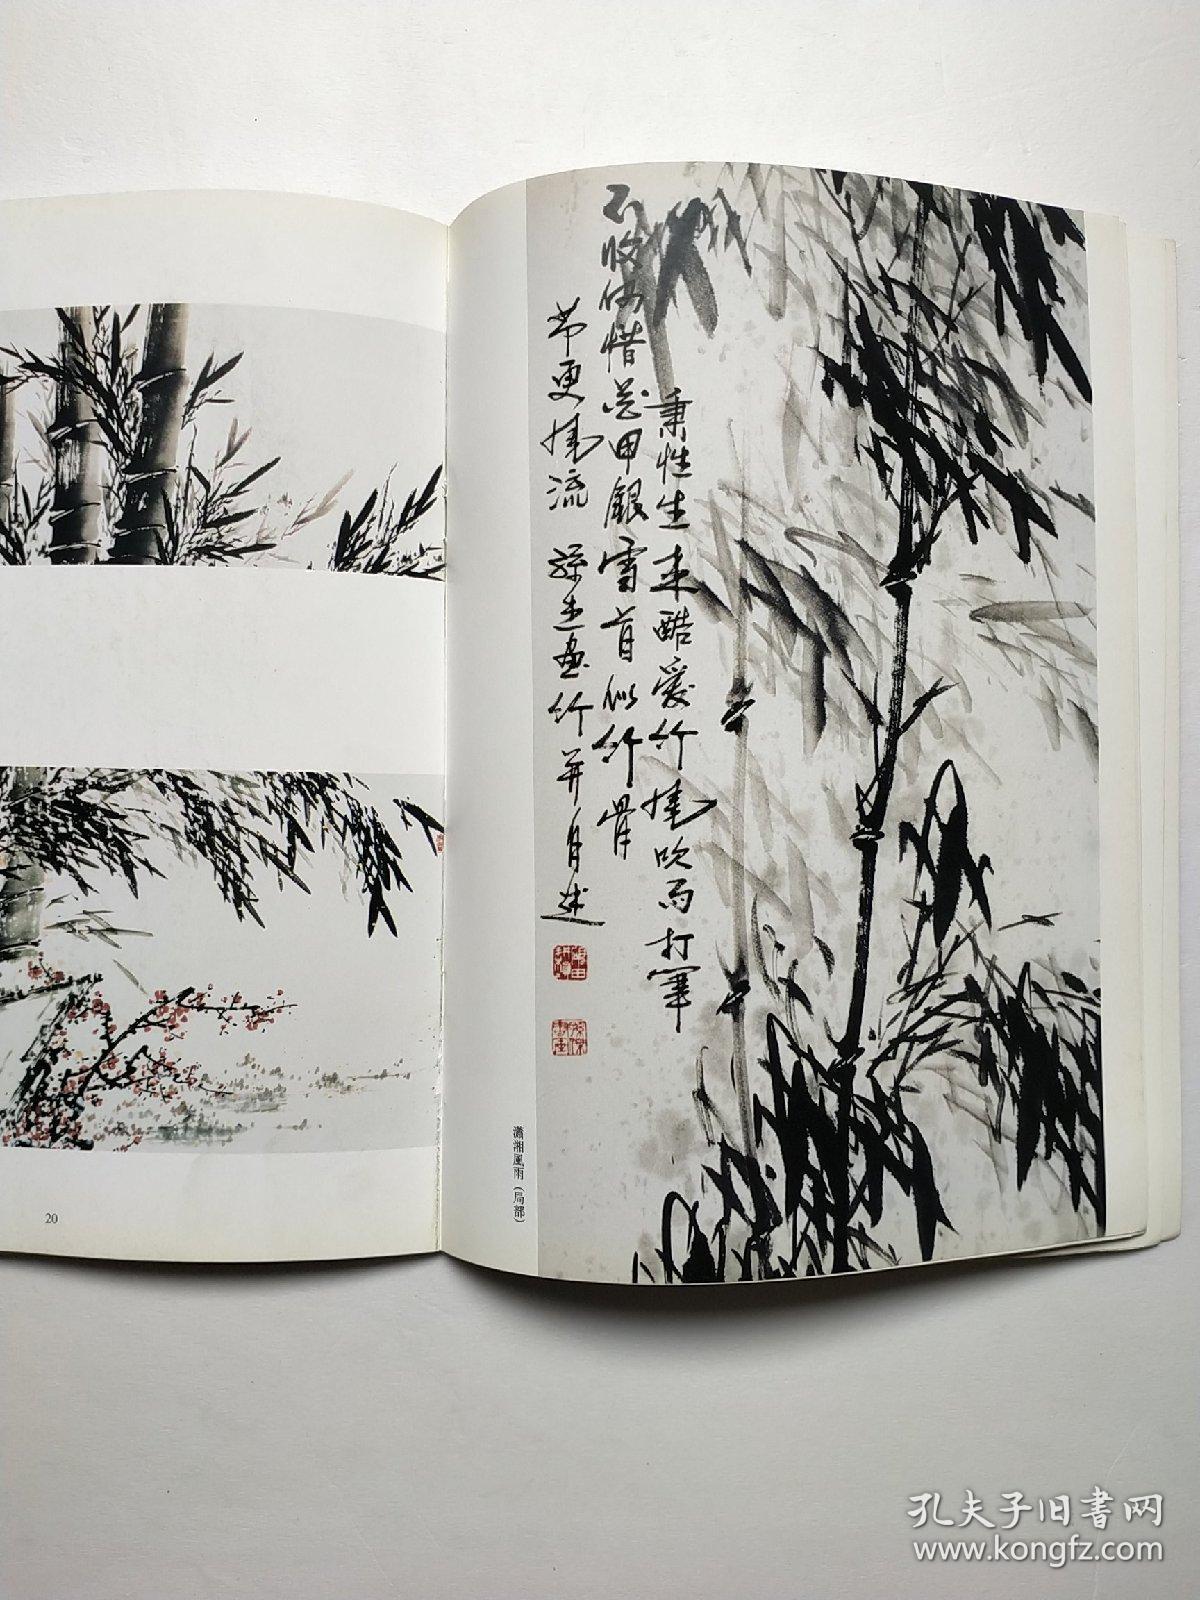 秉性生来酷爱竹風吹雨打筆
不收何惜花甲銀雪首似竹骨
節更風流 画竹并自述
瀟湘風雨（局部）
20
孔夫子旧书网
www.kongfz.com